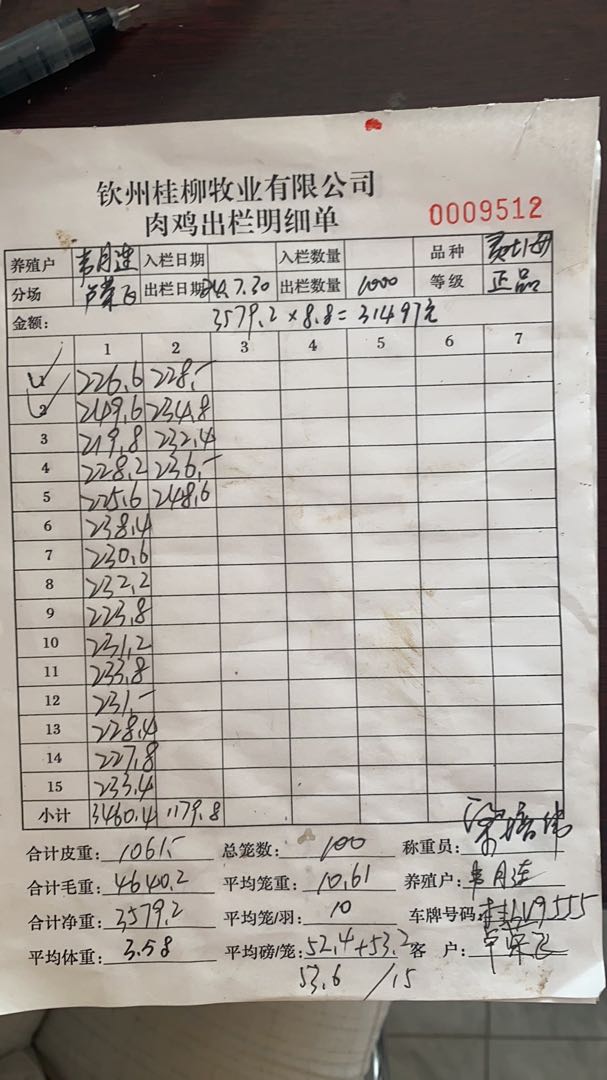 钦州桂柳牧业有限公司
肉鸡出栏明细单 0009512
养殖户 韦月连 入栏日期 入栏数量 品种
分场 出栏日期 24.7.30 出栏数量 1000 等级 正品
金额: 3579.2×8.8=31497元
1 2 3 4 5 6 7
1 226.6 228.-
2 249.6 234.8
3 219.8 232.4
4 228.2 236.-
5 225.6 248.6
6 238.4
7 230.6
8 232.2
9 223.8
10 231.2
11 233.8
12 231.-
13 228.4
14 227.8
15 233.4
小计 3460.4 1179.8
合计皮重: 1061.- 总笼数: 100 称重员:
合计毛重: 4640.2 平均笼重: 10.61 养殖户: 韦月连
合计净重: 3579.2 平均笼/羽: 10 车牌号码:
平均体重: 3.58 平均磅/笼: 52.4+53.2 客 户:
53.6 /15